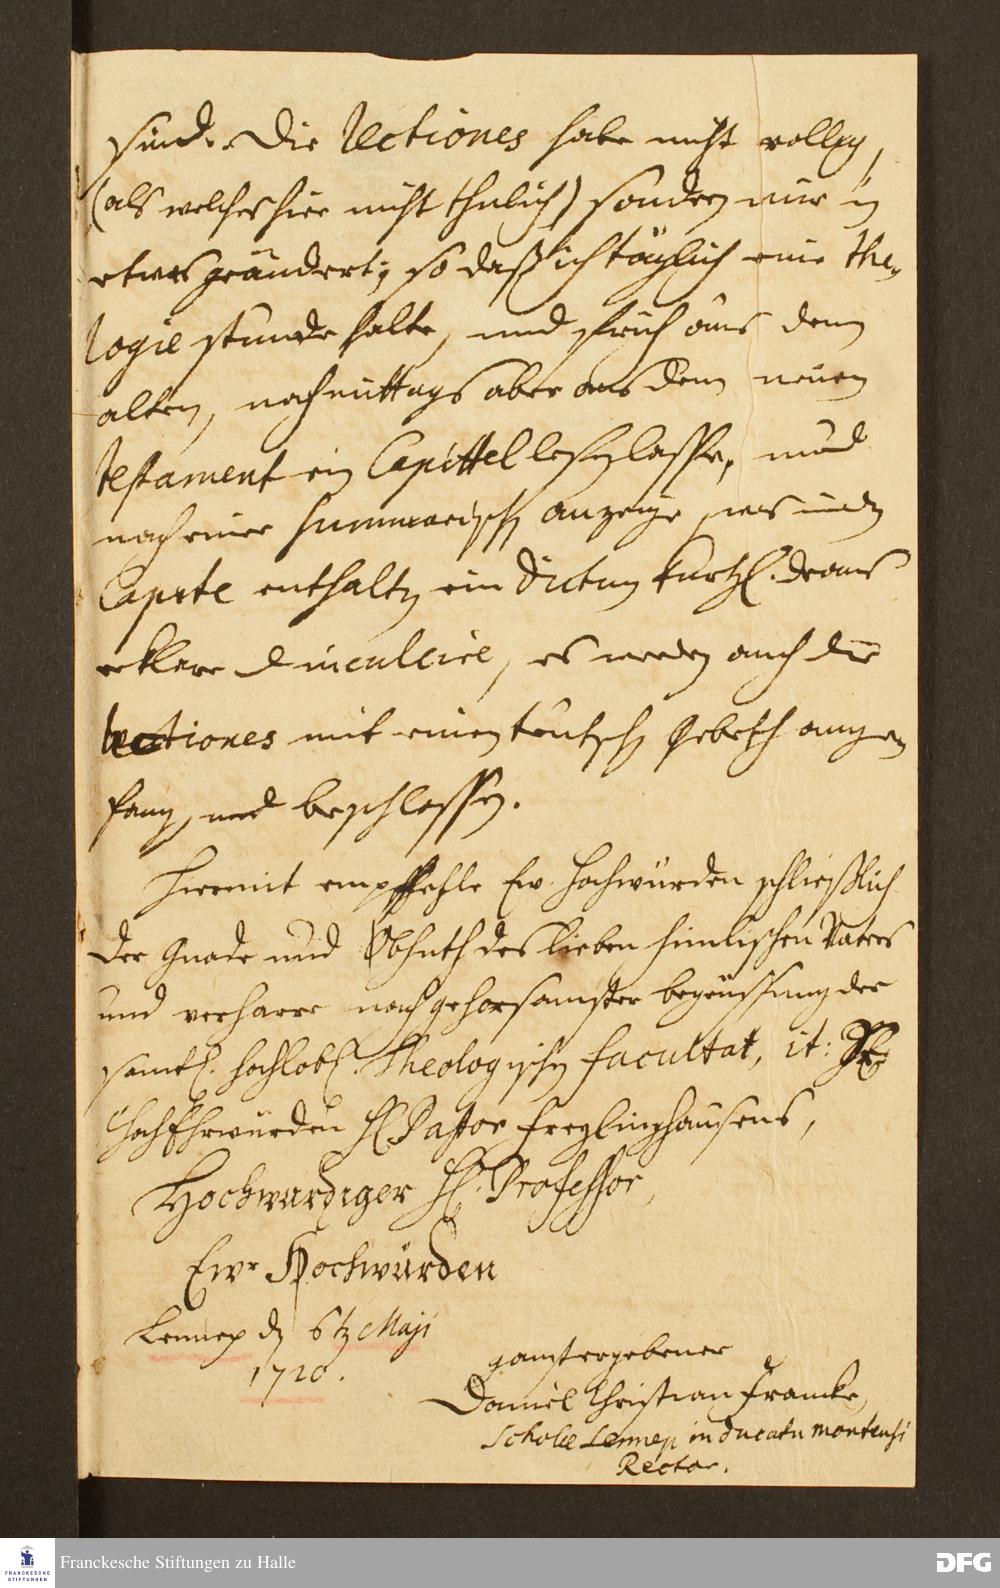 sind. Die Lectiones habe nicht völlig,
(als welches hier nicht thulich) sondern nur in
etwas geändert; so daß ich täglich eine Theo-
logie stunde halte, und früh aus dem
alten, nachmittags aber aus dem neuen
Testament ein Capittel lesen lasse, und
nach einer summarischen anzeige, was in dem
Capite enthalten ein Dictum kurtzl. draus
erkläre & inculcire, es werden auch die
Lectiones mit einem teutschen Gebeth ange-
fangen, und beschlossen.
Hiermit empfehle Ew. Hochwürden schließlich
der Gnade und Obhuth des lieben himlischen Vaters
und verharre nach gehorsamster begrüssung der
sämtl. hochlobl. Theologischen Facultat, it: Sr.
HochEhrwürden H. Pastor Freylinghausens,
Hochwürdiger H. Professor,
Ewr Hochwürden
Lennep d. 6ten Maji
1720.
gantz ergebener
Daniel Christian Francke,
Scholæ Lennep. in ducatu montensi
Rector.
Franckesche Stiftungen zu Halle
FRANCKESCHE
STIFTUNGEN
DFG